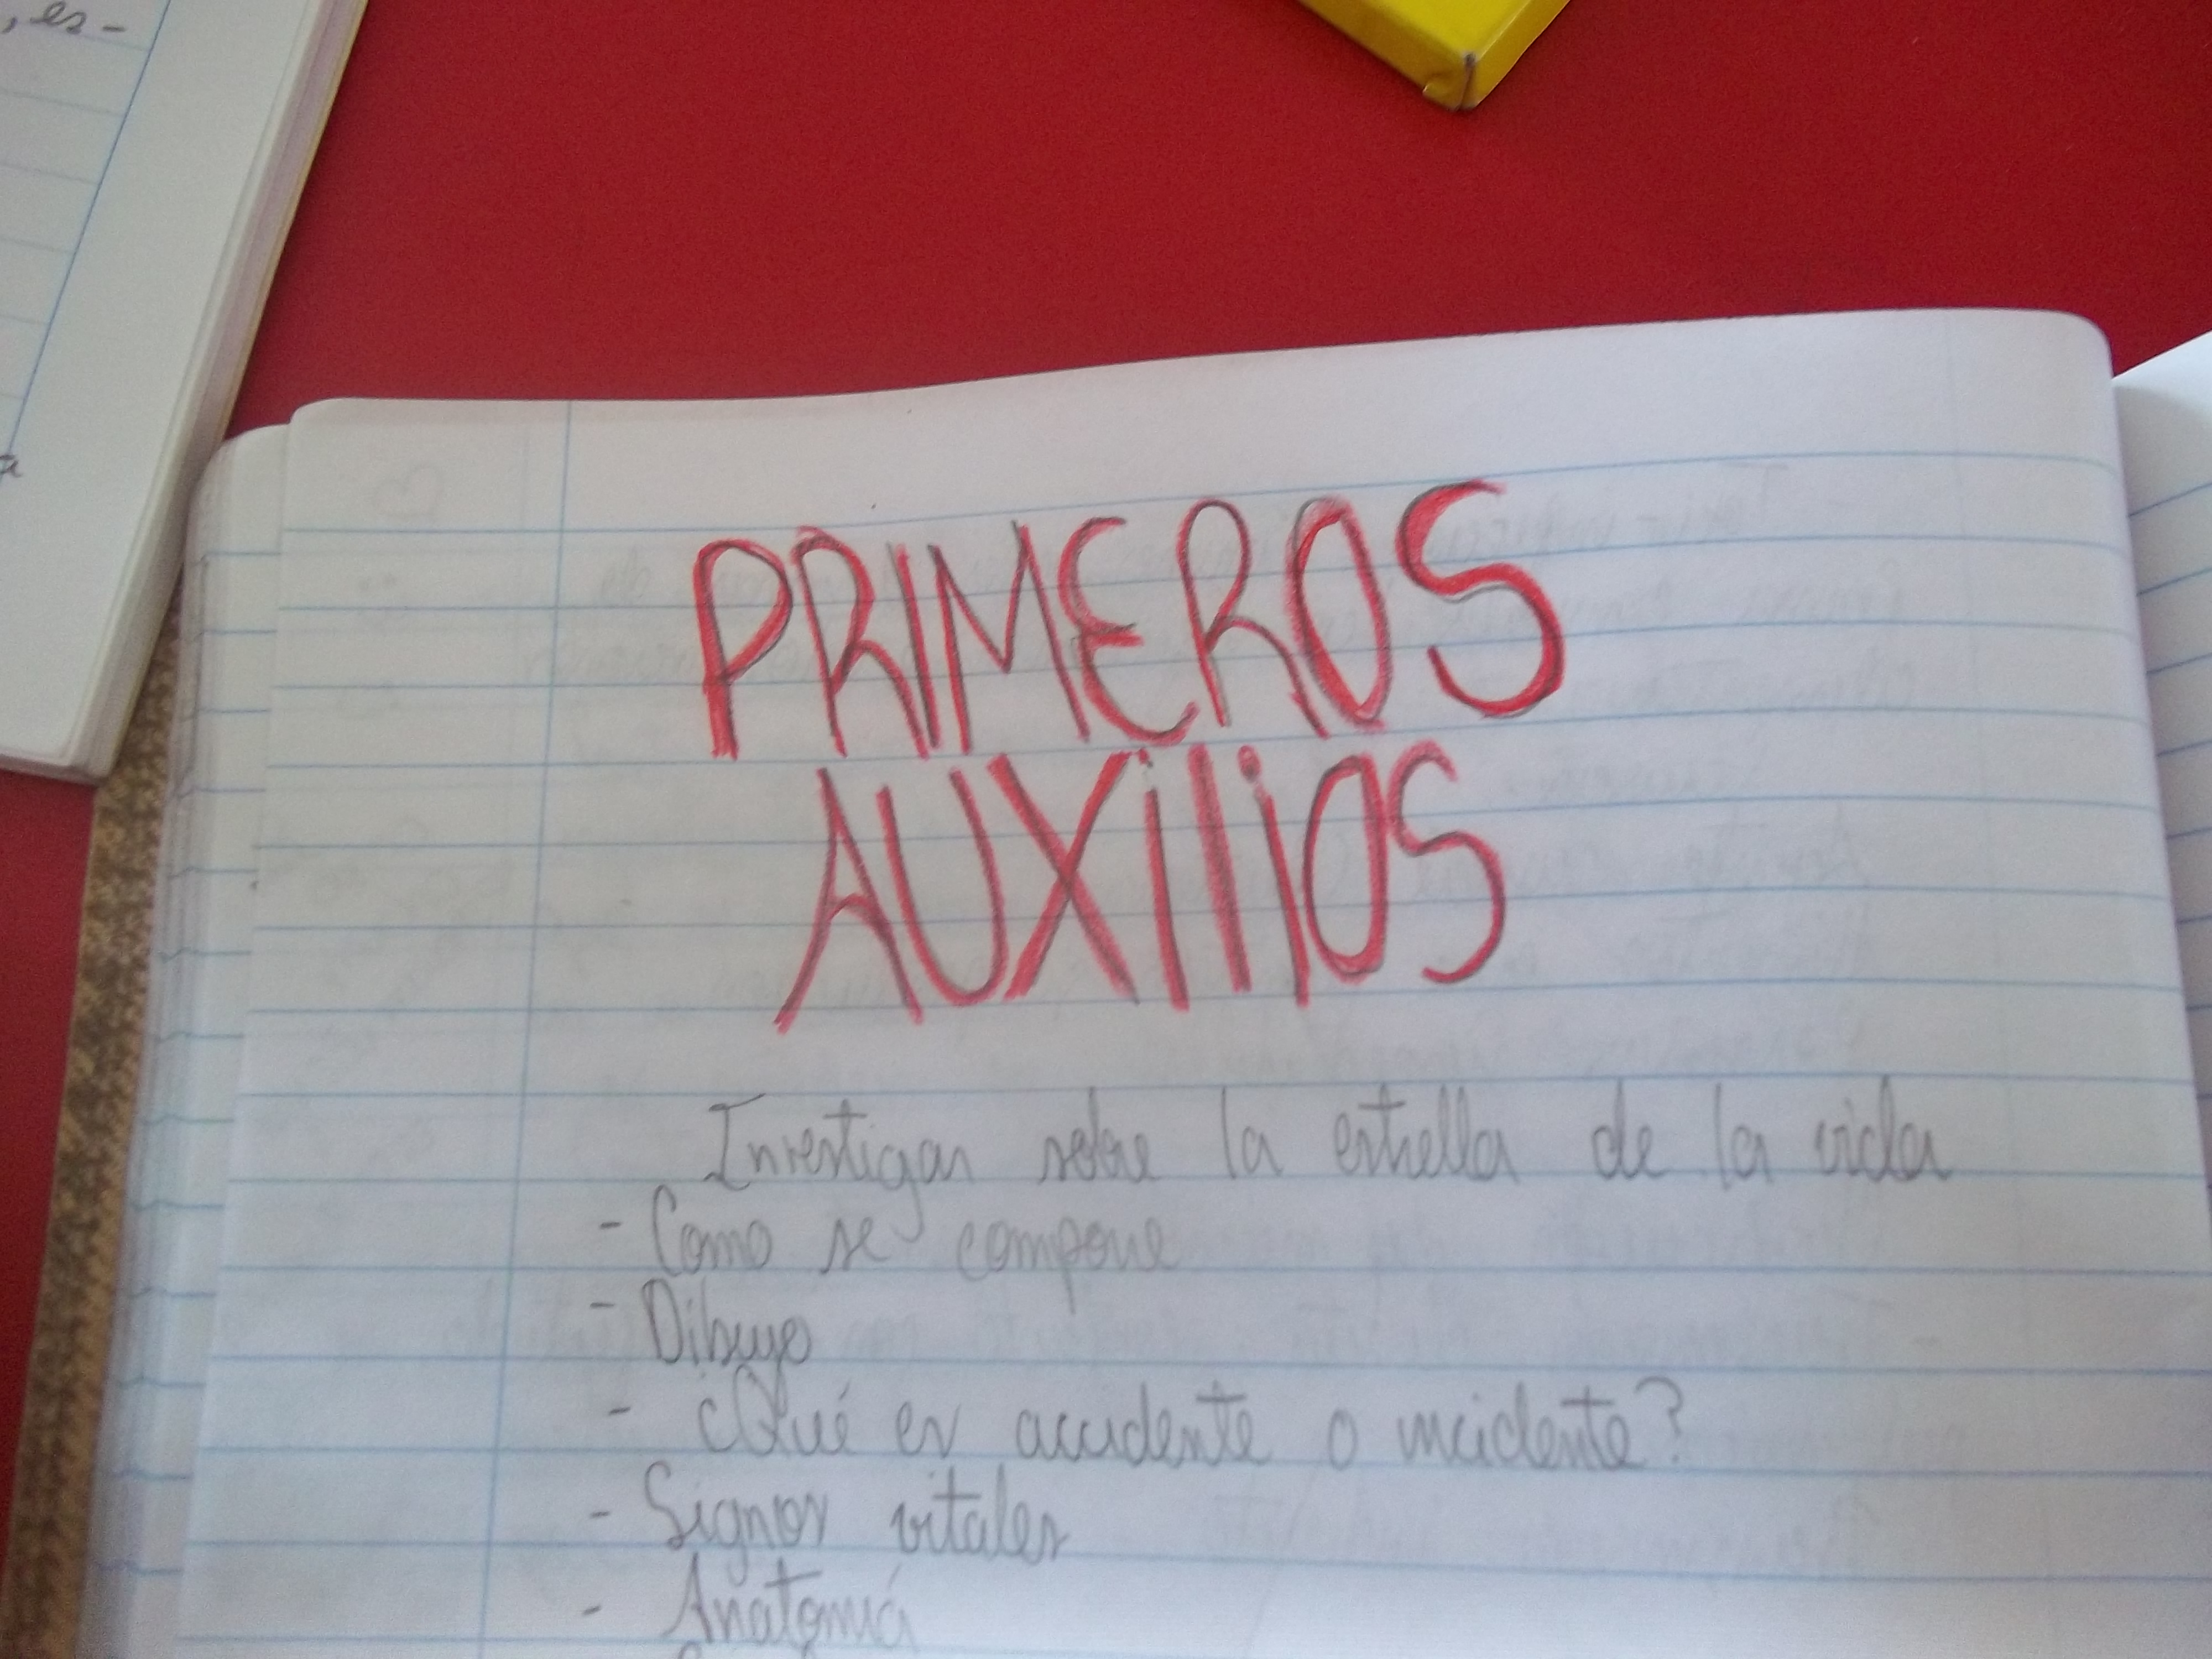 , es-
PRIMEROS
AUXiliOS
Investigar sobre la estrella de la vida
- Como se compone
- Dibujo
- ¿Qué es accidente o incidente?
- Signos vitales
- Anatomía